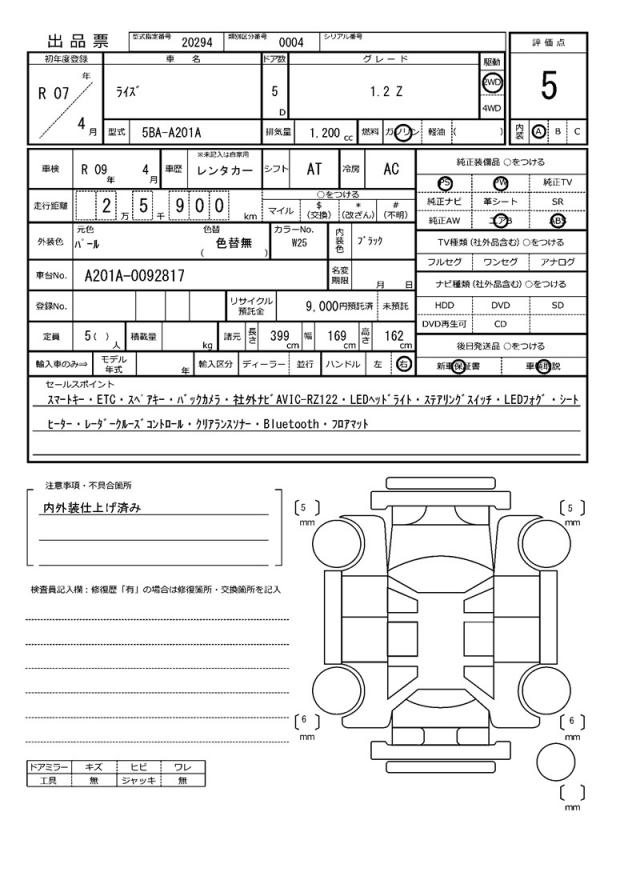 出品票 型式指定番号 20294 類別区分番号 0004 シリアル番号
評価点
初年度登録 車名 ドア数 グレード 駆動
R 07 年 4 月 ﾗｲｽﾞ 5 D 1.2 Z 2WD 4WD
5
型式 5BA-A201A 排気量 1.200 cc 燃料 ガソリン 軽油 ( )
内装 A B C
車検 R 09 年 4 月 車歴 ※未記入は自家用 レンタカー シフト AT 冷房 AC
純正装備品 ○をつける
PS PW 純正TV
走行距離 2 万 5 千 9 0 0 km
○をつける
マイル $ (交換) * (改ざん) # (不明)
純正ナビ 革シート SR
純正AW エアB ABS
外装色 元色 ﾊﾟｰﾙ 色替 色替無 ( ) カラーNo. W25 内装色 ﾌﾞﾗｯｸ
TV種類 (社外品含む) ○をつける
フルセグ ワンセグ アナログ
車台No. A201A-0092817 名変期限 月 日
ナビ種類 (社外品含む) ○をつける
登録No. リサイクル預託金 9,000円預託済 未預託
HDD DVD SD
DVD再生可 CD
定員 5( ) 人 積載量 kg 諸元 長さ 399 cm 幅 169 cm 高さ 162 cm
後日発送品 ○をつける
輸入車のみ⇒ モデル年式 年 輸入区分 ディーラー 並行 ハンドル 左 右
新車保証書 車輌取説
セールスポイント
ｽﾏｰﾄｷｰ・ETC・ｽﾍﾟｱｷｰ・ﾊﾞｯｸｶﾒﾗ・社外ﾅﾋﾞAVIC-RZ122・LEDﾍｯﾄﾞﾗｲﾄ・ｽﾃｱﾘﾝｸﾞｽｲｯﾁ・LEDﾌｫｸﾞ・ｼｰﾄ
ﾋｰﾀｰ・ﾚｰﾀﾞｰｸﾙｰｽﾞｺﾝﾄﾛｰﾙ・ｸﾘｱﾗﾝｽｿﾅｰ・Bluetooth・ﾌﾛｱﾏｯﾄ
注意事項・不具合箇所
内外装仕上げ済み
[ 5 ] mm
[ 5 ] mm
検査員記入欄：修復歴「有」の場合は修復箇所・交換箇所を記入
[ 6 ] mm
[ 6 ] mm
ドアミラー キズ ヒビ ワレ
工具 無 ジャッキ 無
[ ] mm